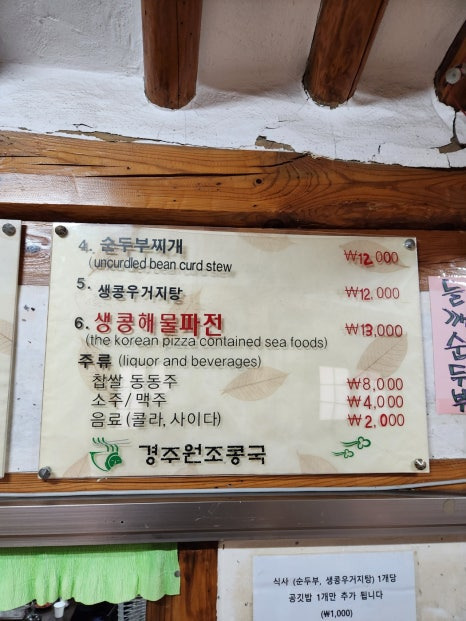 4. 순두부찌개 ₩12,000
(uncurdled bean curd stew
5. 생콩우거지탕 ₩12,000
6. 생콩해물파전 ₩13,000
(the korean pizza contained sea foods)
주류 (liquor and beverages)
찹쌀 동동주 ₩8,000
소주/ 맥주 ₩4,000
음료 (콜라, 사이다) ₩2,000
경주원조콩국
들깨순두부
식사 (순두부, 생콩우거지탕) 1개당
공깃밥 1개만 추가 됩니다
(₩1,000)